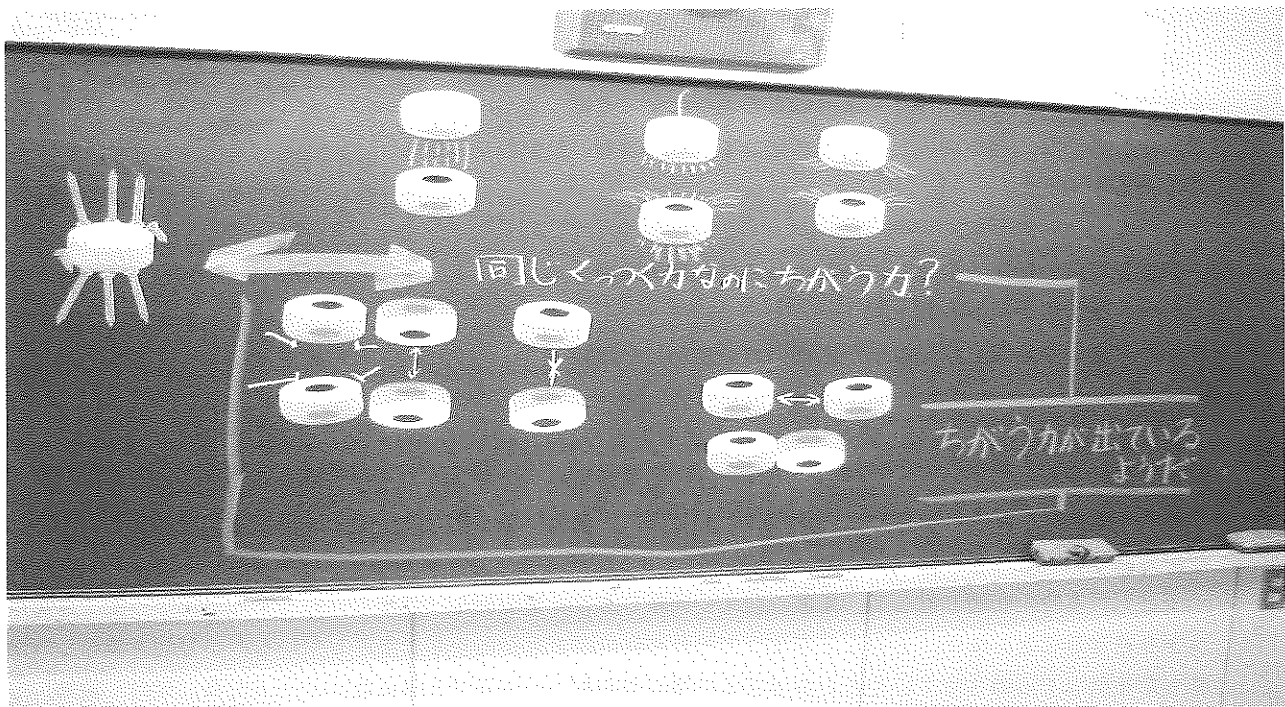 同じくっつく力なのにちがう力?
ちがう力が正ている
ようだ